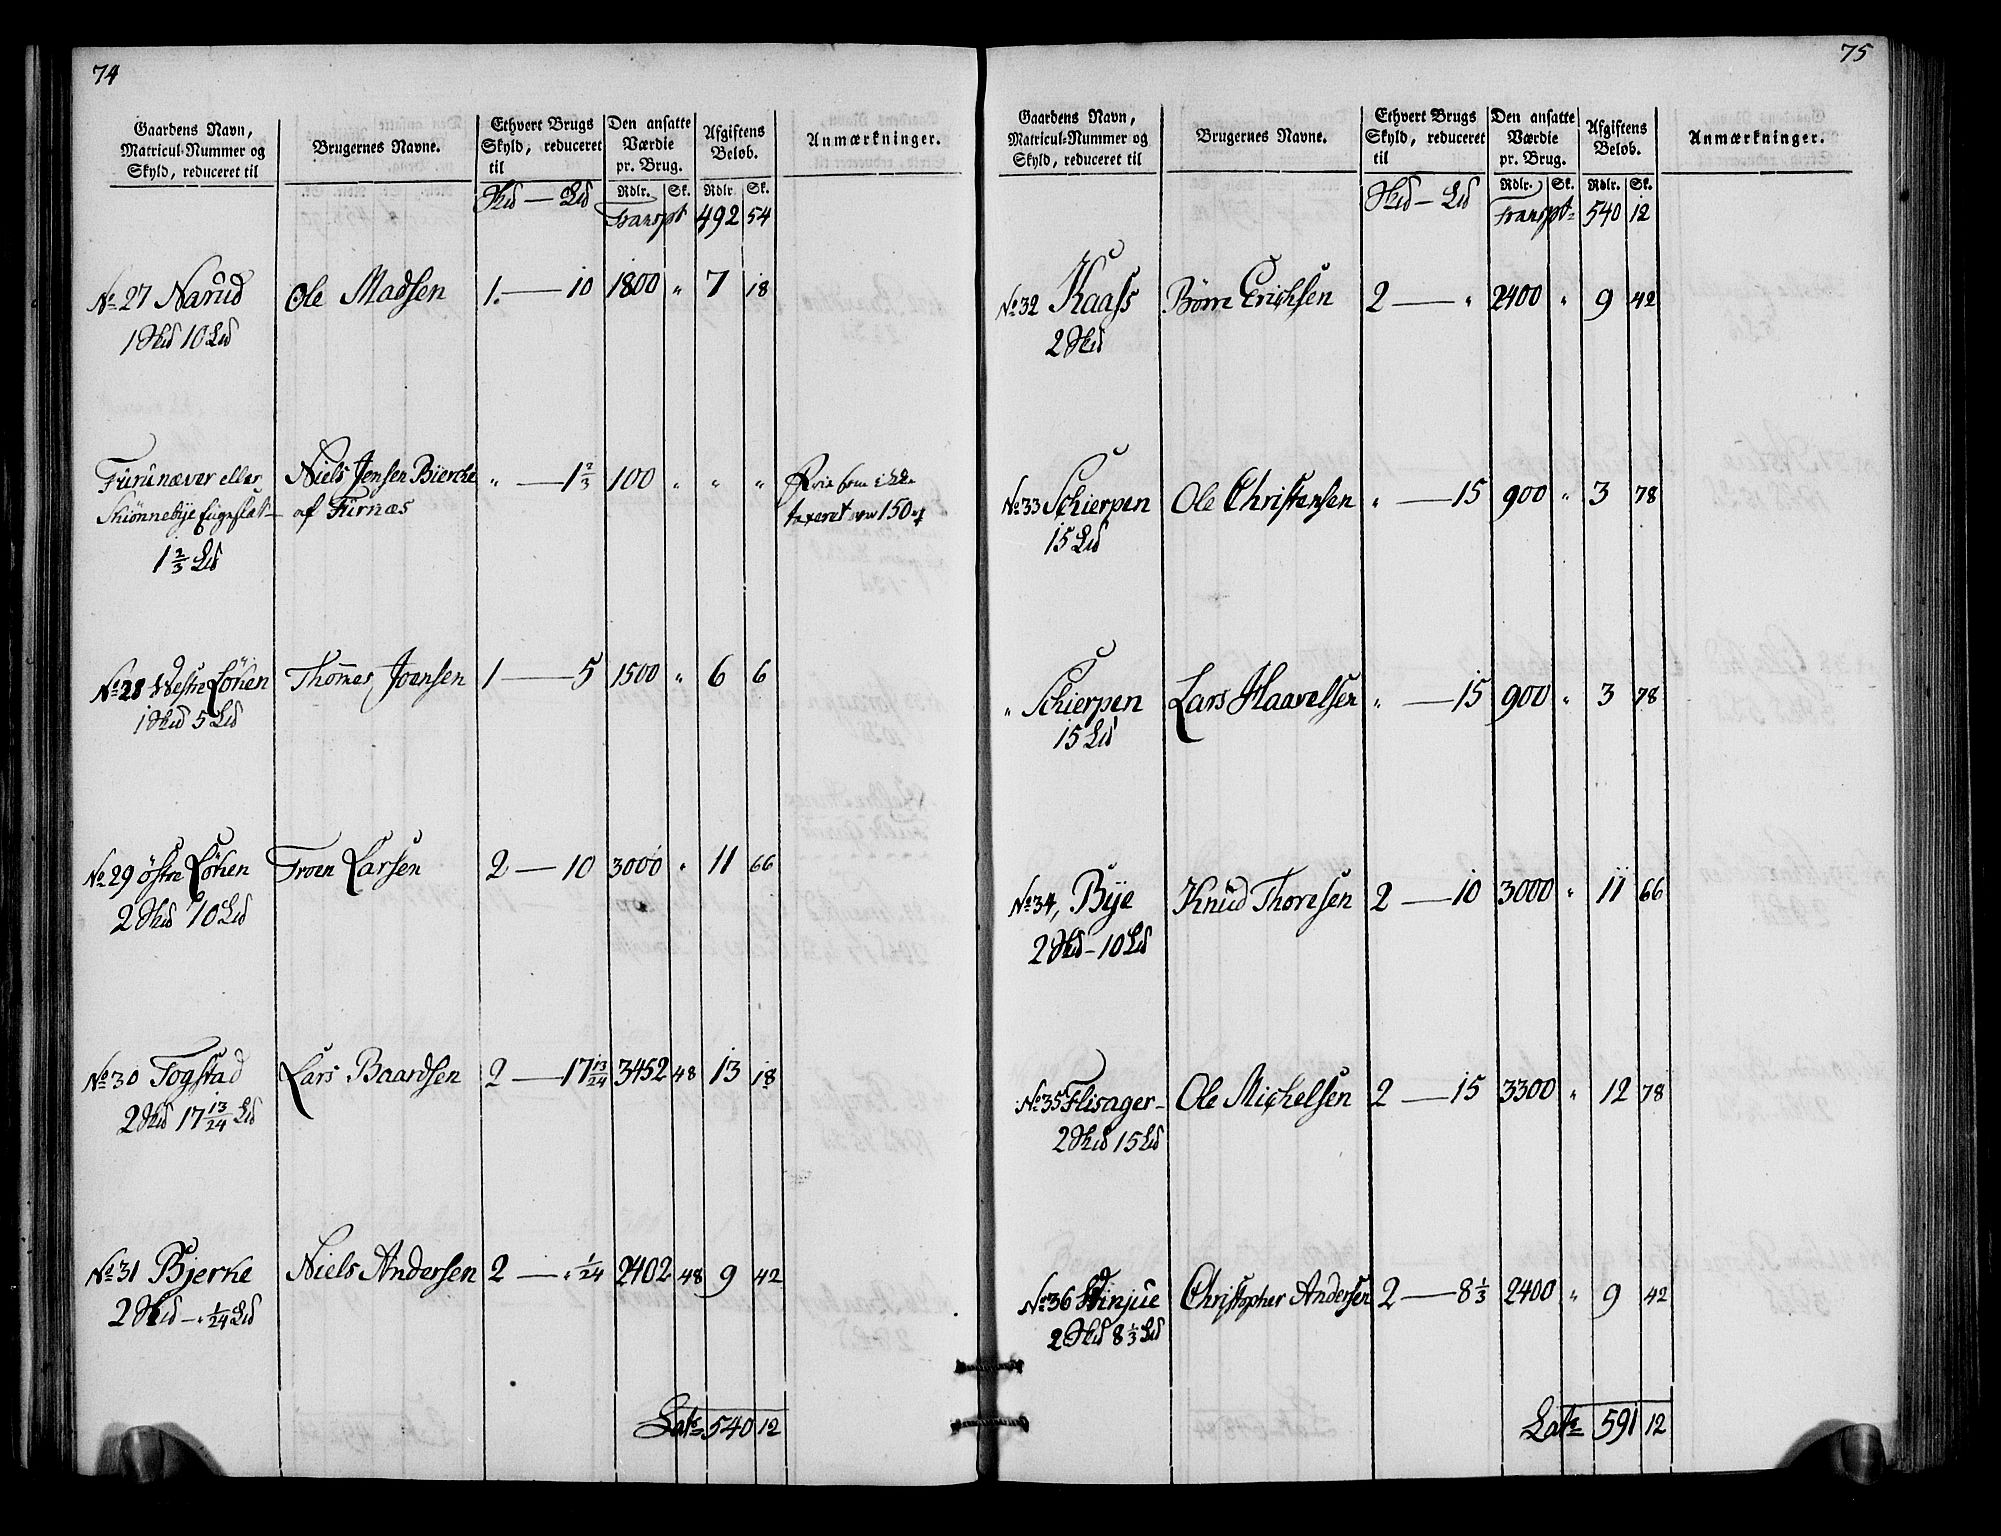 74
Gaardens Navn,
Matricul-Nummer og
Skyld, reduceret til
Brugernes Navne.
Ethvert Brugs
Skyld, reduceret
til
Den ansatte
Værdie
pr. Brug.
Afgiftens
Beløb.
Anmærkninger.
Skd — Ld Rdlr. Sk. Rdlr. Sk.
Transpt 492 54
No 27 Narud Ole Madsen 1. — 10 1800 " 7 18
1 Skd 10 Ld
Furunæver eller Niels Jensen Biercke " — 1 2/3 100 " " "
Skiønnebye Engeslæt af Furnæs
1 2/3 Ld
taxeret over 150
No 28 Westre Löken Thomes Joensen 1 — 5 1500 " 6 6
1 Skd 5 Ld
No 29 östre Löken Troen Larsen 2 — 10 3000 " 11 66
2 Skd 10 Ld
No 30 Fogstad Lars Baardsen 2 — 17 13/24 3452 48 13 18
2 Skd 17 13/24 Ld
No 31 Bjerke Niels Andersen 2 — " 1/24 2402 48 9 42
2 Skd — " 1/24 Ld
Late 540 12
75
Gaardens Navn,
Matricul-Nummer og
Skyld, reduceret til
Brugernes Navne.
Ethvert Brugs
Skyld, reduceret
til
Den ansatte
Værdie
pr. Brug.
Afgiftens
Beløb.
Anmærkninger.
Skd — Ld Rdlr. Sk. Rdlr. Sk.
Transpt 540 12
No 32 Kaass Börre Erichsen 2 — " 2400 " 9 42
2 Skd
No 33 Schierpen Ole Christensen " — 15 900 " 3 78
15 Ld
" Schierpen Lars Haavelsen " — 15 900 " 3 78
15 Ld
No 34, Bye Knud Thoresen 2 — 10 3000 " 11 66
2 Skd — 10 Ld
No 35 Flisager Ole Michelsen 2 — 15 3300 " 12 78
2 Skd 15 Ld
No 36 Hinjue Christopher Andersen 2 — 8 1/3 2400 " 9 42
2 Skd 8 1/3 Ld
Late 591 12